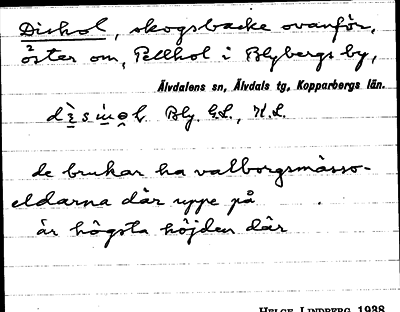 Dishol, skogsbacke ovanför,
öster om, Pellhol i Blybergs by,
Älvdalens sn, Älvdals tg, Kopparbergs län.
Bly. G.L., H.L.
de brukar ha valborgsmässo-
eldarna där uppe på
är högsta höjden där
HELGE LINDBERG 1938